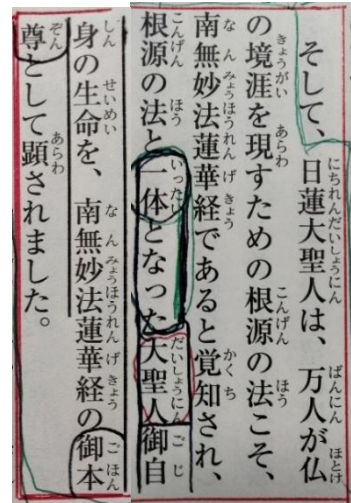 そして、日蓮大聖人は、万人が仏
の境涯を現すための根源の法こそ、
南無妙法蓮華経であると覚知され、
根源の法と一体となった大聖人御自
身の生命を、南無妙法蓮華経の御本
尊として顕されました。